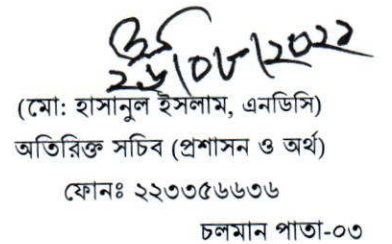 ২৬/০৮/২০২২
(মো: হাসানুল ইসলাম, এনডিসি)
অতিরিক্ত সচিব (প্রশাসন ও অর্থ)
ফোনঃ ২২৩৩৫৬৬৩৬
চলমান পাতা-০৩